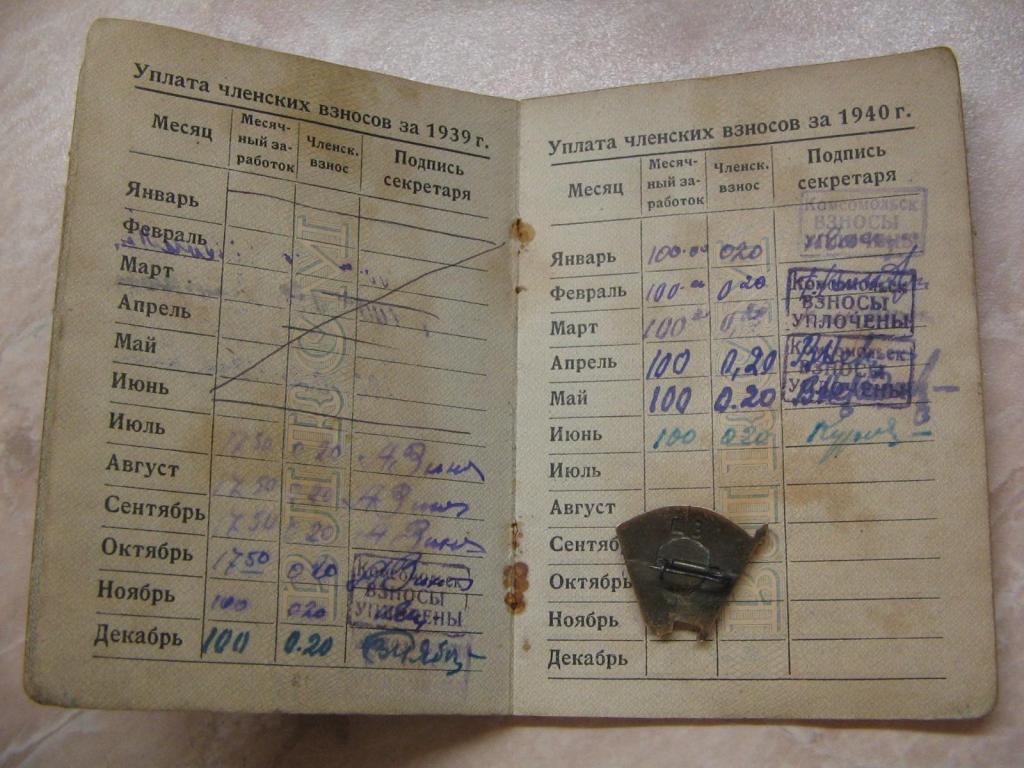 Уплата членских взносов за 1939 г.
Месяц Месяч-ный за-работок Членск. взнос Подпись секретаря
Январь
Февраль
Март
Апрель
Май
Июнь
Июль 17 50 0 20
Август 17 50 0 20
Сентябрь 17 50 0 20
Октябрь 17 50 0 20
Ноябрь 100 0 20
Декабрь 100 0.20
Комсомольск
ВЗНОСЫ
УПЛОЧЕНЫ
ВЛКСМ
Уплата членских взносов за 1940 г.
Месяц Месяч-ный за-работок Членск. взнос Подпись секретаря
Январь 100-00 0 20
Февраль 100-00 0 20
Март 100 0,20
Апрель 100 0,20
Май 100 0.20
Июнь 100 0 20
Июль
Август
Сентяб
Октябрь
Ноябрь
Декабрь
Комсомольск
ВЗНОСЫ
Комсомольск
ВЗНОСЫ
УПЛОЧЕНЫ
Комсомольск
ВЗНОСЫ
УПЛОЧЕНЫ